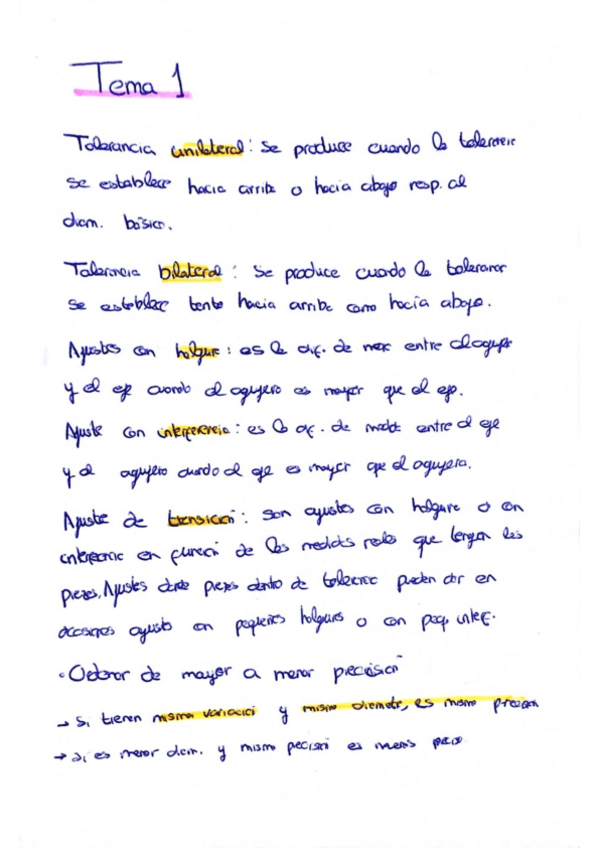 Tema 1
Tolerancia unilateral: se produce cuando la tolerancia
se establece hacia arriba o hacia abajo resp. al
diam. básico.
Tolerancia bilateral: se produce cuando la tolerancia
se establece tanto hacia arriba como hacia abajo.
Ajustes con holgura: es la dif. de entre el agujero
y el eje cuando el agujero es mayor que el eje.
Ajuste con interferencia: es la dif. de medida entre el eje
y el agujero cuando el eje es mayor que el agujero.
Ajuste de transición: son ajustes con holgura o con
interferencia en función de las medidas reales que tengan las
piezas. Ajustes donde piezas dentro de tolerancia pueden dar en
ocasiones ajuste con pequeñas holguras o con peq. interf.
· Ordenar de mayor a menor precisión
→ Si tienen misma variación y mismo diámetro, es misma precisión
→ Si es menor diam. y misma precisión es menos